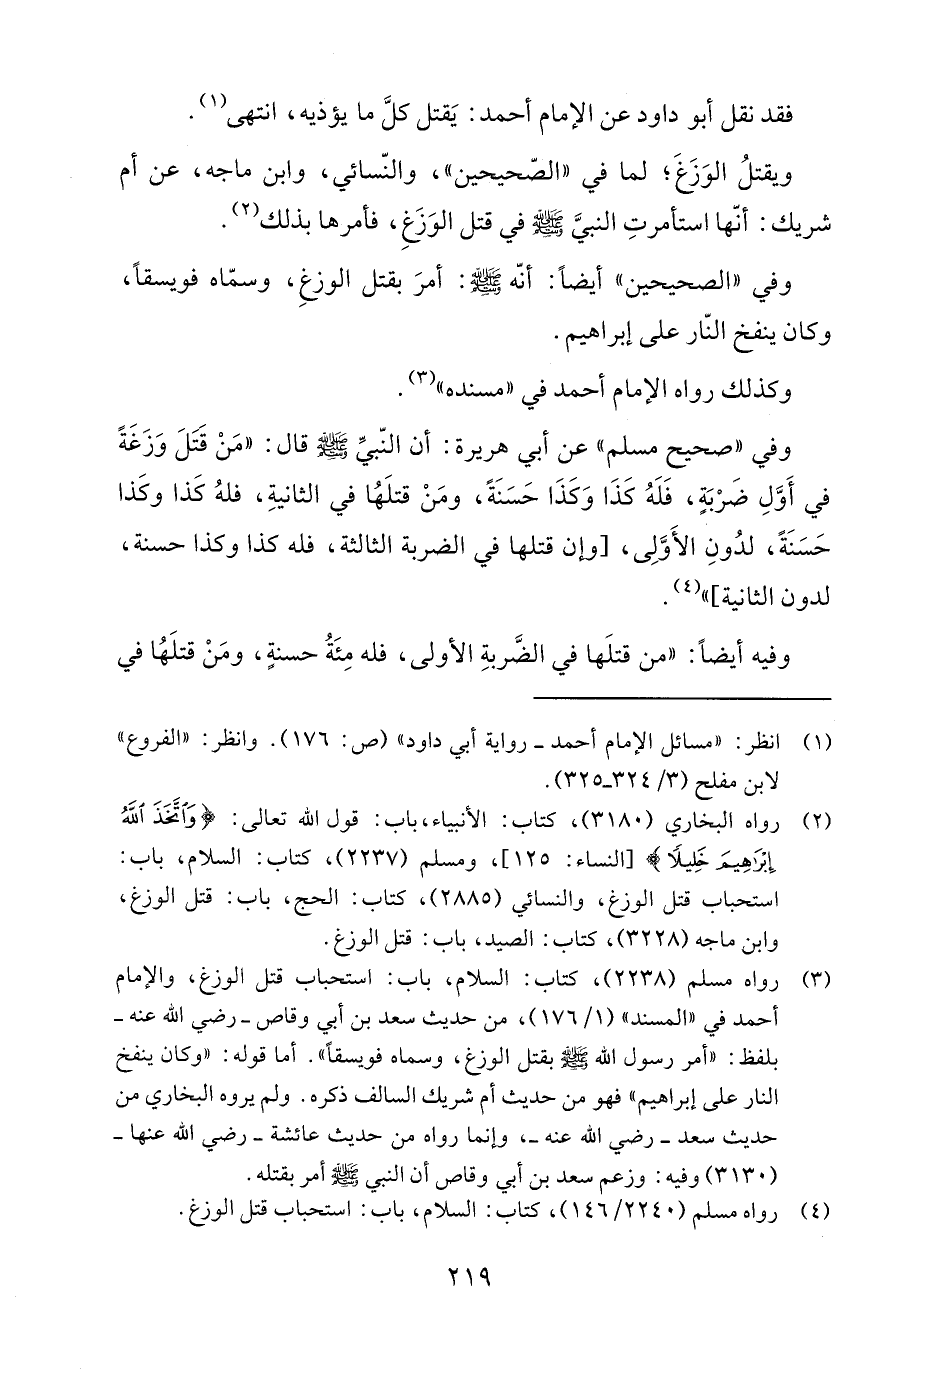 فقد نقل أبو داود عن الإمام أحمد: يَقتل كلَّ ما يؤذيه، انتهى(١).
ويقتلُ الوَزَغَ؛ لما في «الصّحيحين»، والنّسائي، وابن ماجه، عن أم
شريك: أنّها استأمرتِ النبيَّ ﷺ في قتل الوَزَغِ، فأمرها بذلك(٢).
وفي «الصحيحين» أيضاً: أنّه ﷺ: أمرَ بقتل الوزغِ، وسمّاه فويسقاً،
وكان ينفخ النّار على إبراهيم.
وكذلك رواه الإمام أحمد في «مسنده»(٣).
وفي «صحيح مسلم» عن أبي هريرة: أن النبيِّ ﷺ قال: «مَنْ قَتَلَ وَزَغَةً
في أَوَّلِ ضَرْبَةٍ، فَلَهُ كَذَا وَكَذَا حَسَنَةً، ومَنْ قتلَهُا في الثانيةِ، فلهُ كذا وكذا
حَسَنَةً، لدُونِ الأَوَّلِى، [وإن قتلها في الضربة الثالثة، فله كذا وكذا حسنة،
لدون الثانية]»(٤).
وفيه أيضاً: «من قتلَها في الضَّربةِ الأولى، فله مِئَةُ حسنةٍ، ومَنْ قتلَهُا في
(١) انظر: «مسائل الإمام أحمد ـ رواية أبي داود» (ص: ١٧٦). وانظر: «الفروع»
لابن مفلح (٣/ ٣٢٤ـ٣٢٥).
(٢) رواه البخاري (٣١٨٠)، كتاب: الأنبياء، باب: قول الله تعالى: ﴿وَٱتَّخَذَ ٱللَّهُ
إِبْرَٰهِيمَ خَلِيلًا﴾ [النساء: ١٢٥]، ومسلم (٢٢٣٧)، كتاب: السلام، باب:
استحباب قتل الوزغ، والنسائي (٢٨٨٥)، كتاب: الحج، باب: قتل الوزغ،
وابن ماجه (٣٢٢٨)، كتاب: الصيد، باب: قتل الوزغ.
(٣) رواه مسلم (٢٢٣٨)، كتاب: السلام، باب: استحباب قتل الوزغ، والإمام
أحمد في «المسند» (١/ ١٧٦)، من حديث سعد بن أبي وقاص ـ رضي الله عنه ـ
بلفظ: «أمر رسول الله ﷺ بقتل الوزغ، وسماه فويسقاً». أما قوله: «وكان ينفخ
النار على إبراهيم» فهو من حديث أم شريك السالف ذكره. ولم يروه البخاري من
حديث سعد ـ رضي الله عنه ـ، وإنما رواه من حديث عائشة ـ رضي الله عنها ـ
(٣١٣٠) وفيه: وزعم سعد بن أبي وقاص أن النبي ﷺ أمر بقتله.
(٤) رواه مسلم (٢٢٤٠/ ١٤٦)، كتاب: السلام، باب: استحباب قتل الوزغ.
٢١٩